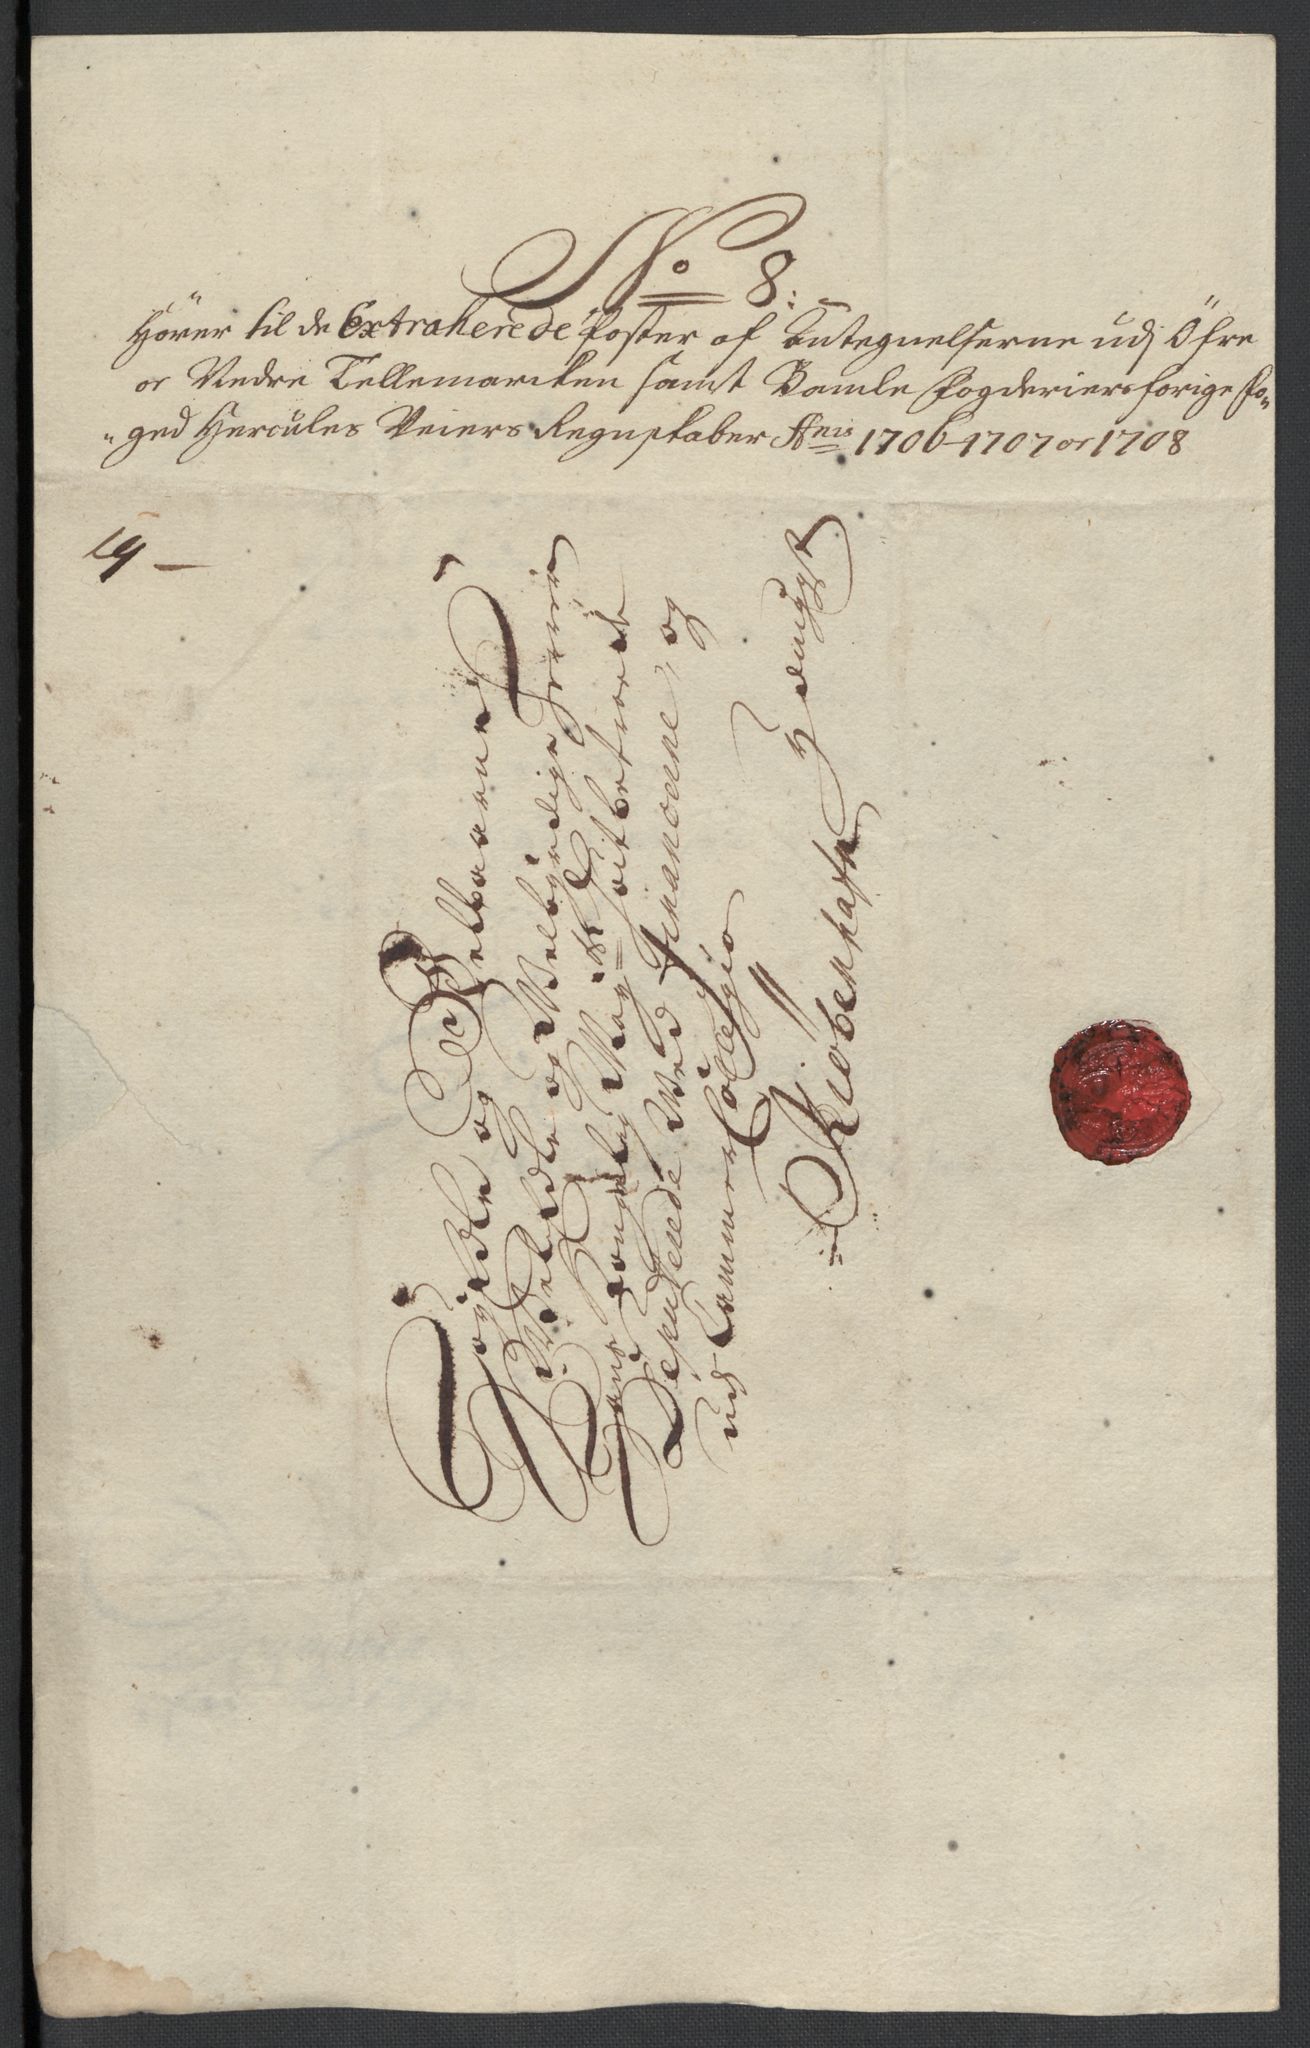 No 8:
Hörer til de Extraherede Poster af Antegnelserne udj Öfre
og Nedre Tellemarcken samt Bamle Fogderiers forige Fo„
„ged Hercules Weiers Regnskaber Anis 1706-1707 og 1708
19 —
Höyædle og Velbaarne
Velædle og Velbyrdige Herrer
Hans Kongelig Mayts Höitbetroede
Deputerede Ved Financerne og
udj Cammer Collegio
Kiöbenhafn